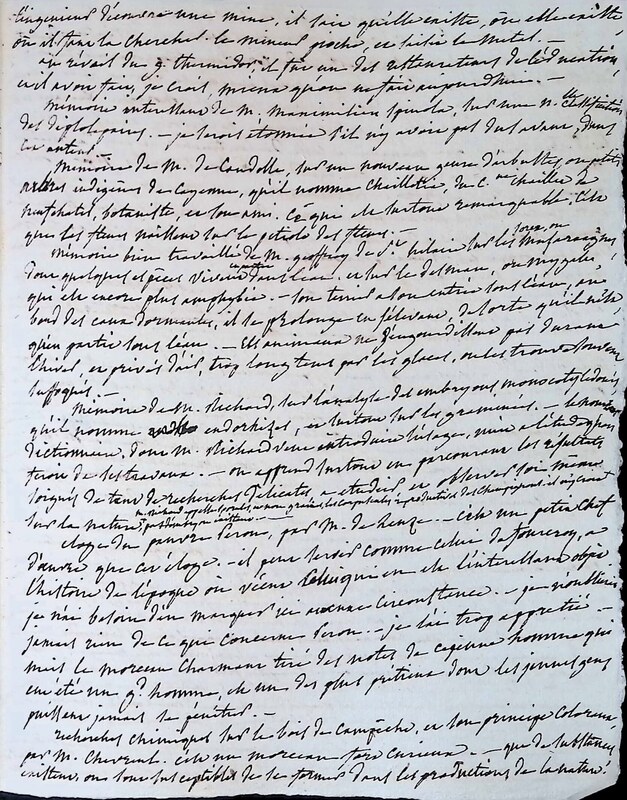 l'ingenieur découvre une mine, il sait qu'elle existe, où elle existe
où il faut la chercher. le mineur pioche, et saisit le metal. -
au réveil du 9 thermidor, il fut un des restaurateurs de l'éducation
et il avoit fait, je crois, mieux qu'on ne fait aujourdhuie. -
Mémoire interessant de M. Maximilien Spinola, sur une n.lle classification
des diplolepaires. - je serois etonnée s'il n'y avoit pas du savant dans
cet auteur -
Mémoire de M. de Candolle, sur un nouveau genre d'arbustes, ou petits
arbres indigenes de Cayenne, qu'il nomme Chailletia, du C.ne Chaillet de
neufchatel, botaniste, et son ami. Ce qui est surtout remarquable, c'est
que les fleurs naissent sur le petiole des fleurs. -
Mémoire bien travaillé de M. geoffroy de S.t hilaire sur les sorex, ou musaraignes
dont quelques espèces vivent dans l'eau. et sur le desman, ou mygale
qui est encore plus amphybie. - son terrier a son entrée sous l'eau, au
bord des eaux dormantes, il se prolonge en s'elevant, de sorte qu'il n'est
qu'en partie sous l'eau. - Ces animaux ne s'engourdissent pas durant
l'hiver, et privés d'air, trop longtems par les glaces, on les trouve souvent
suffoqués. -
Mémoire de M. Richard, sur l'analyse des embryons monocotyledonés
qu'il nomme endorhizes, et surtout sur les graminées. - le nouveau
dictionnaire, dont M. Richard veut introduire l'usage, nuira à l'étude qu'on
feroit de ses travaux. - on apprend surtout en parcourant les resultats
soignés de tant de recherches délicates, a etudier et observer soi même
sur la nature,
eloge du pauvre Peron, par M. deleuze. - c'est un petit chef
d'œuvre que cet éloge. - il peut servir comme celui de fourcroy, a
l'histoire de l'époque où vécut celui qui en est l'interessant objet
je n'ai besoin d'en marquer ici aucune circonstance. - je n'oublierai
jamais rien de ce qui concerne Peron. - je l'ai trop apprétié -
mais le morceau charmant tiré des notes de ce jeune homme qui
eut été un g.d homme, est un des plus pretieux dont les jeunes gens
puissent jamais se pénétrer. -
recherches chimiques sur le bois de Campêche, et son principe colorant
par M. Chevreul. c'est un morceau fort curieux. - que de substances
existent, ou sont susceptibles de se former dans les productions de la nature!